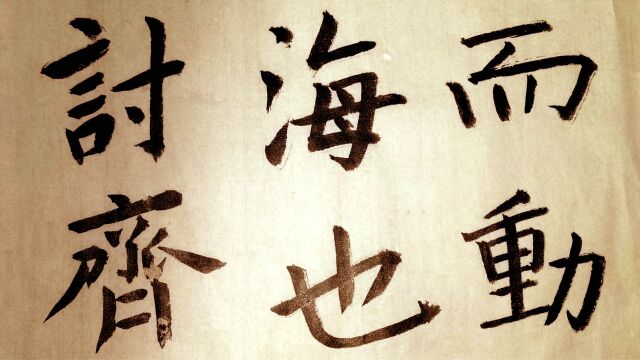 而動
海也
討齊